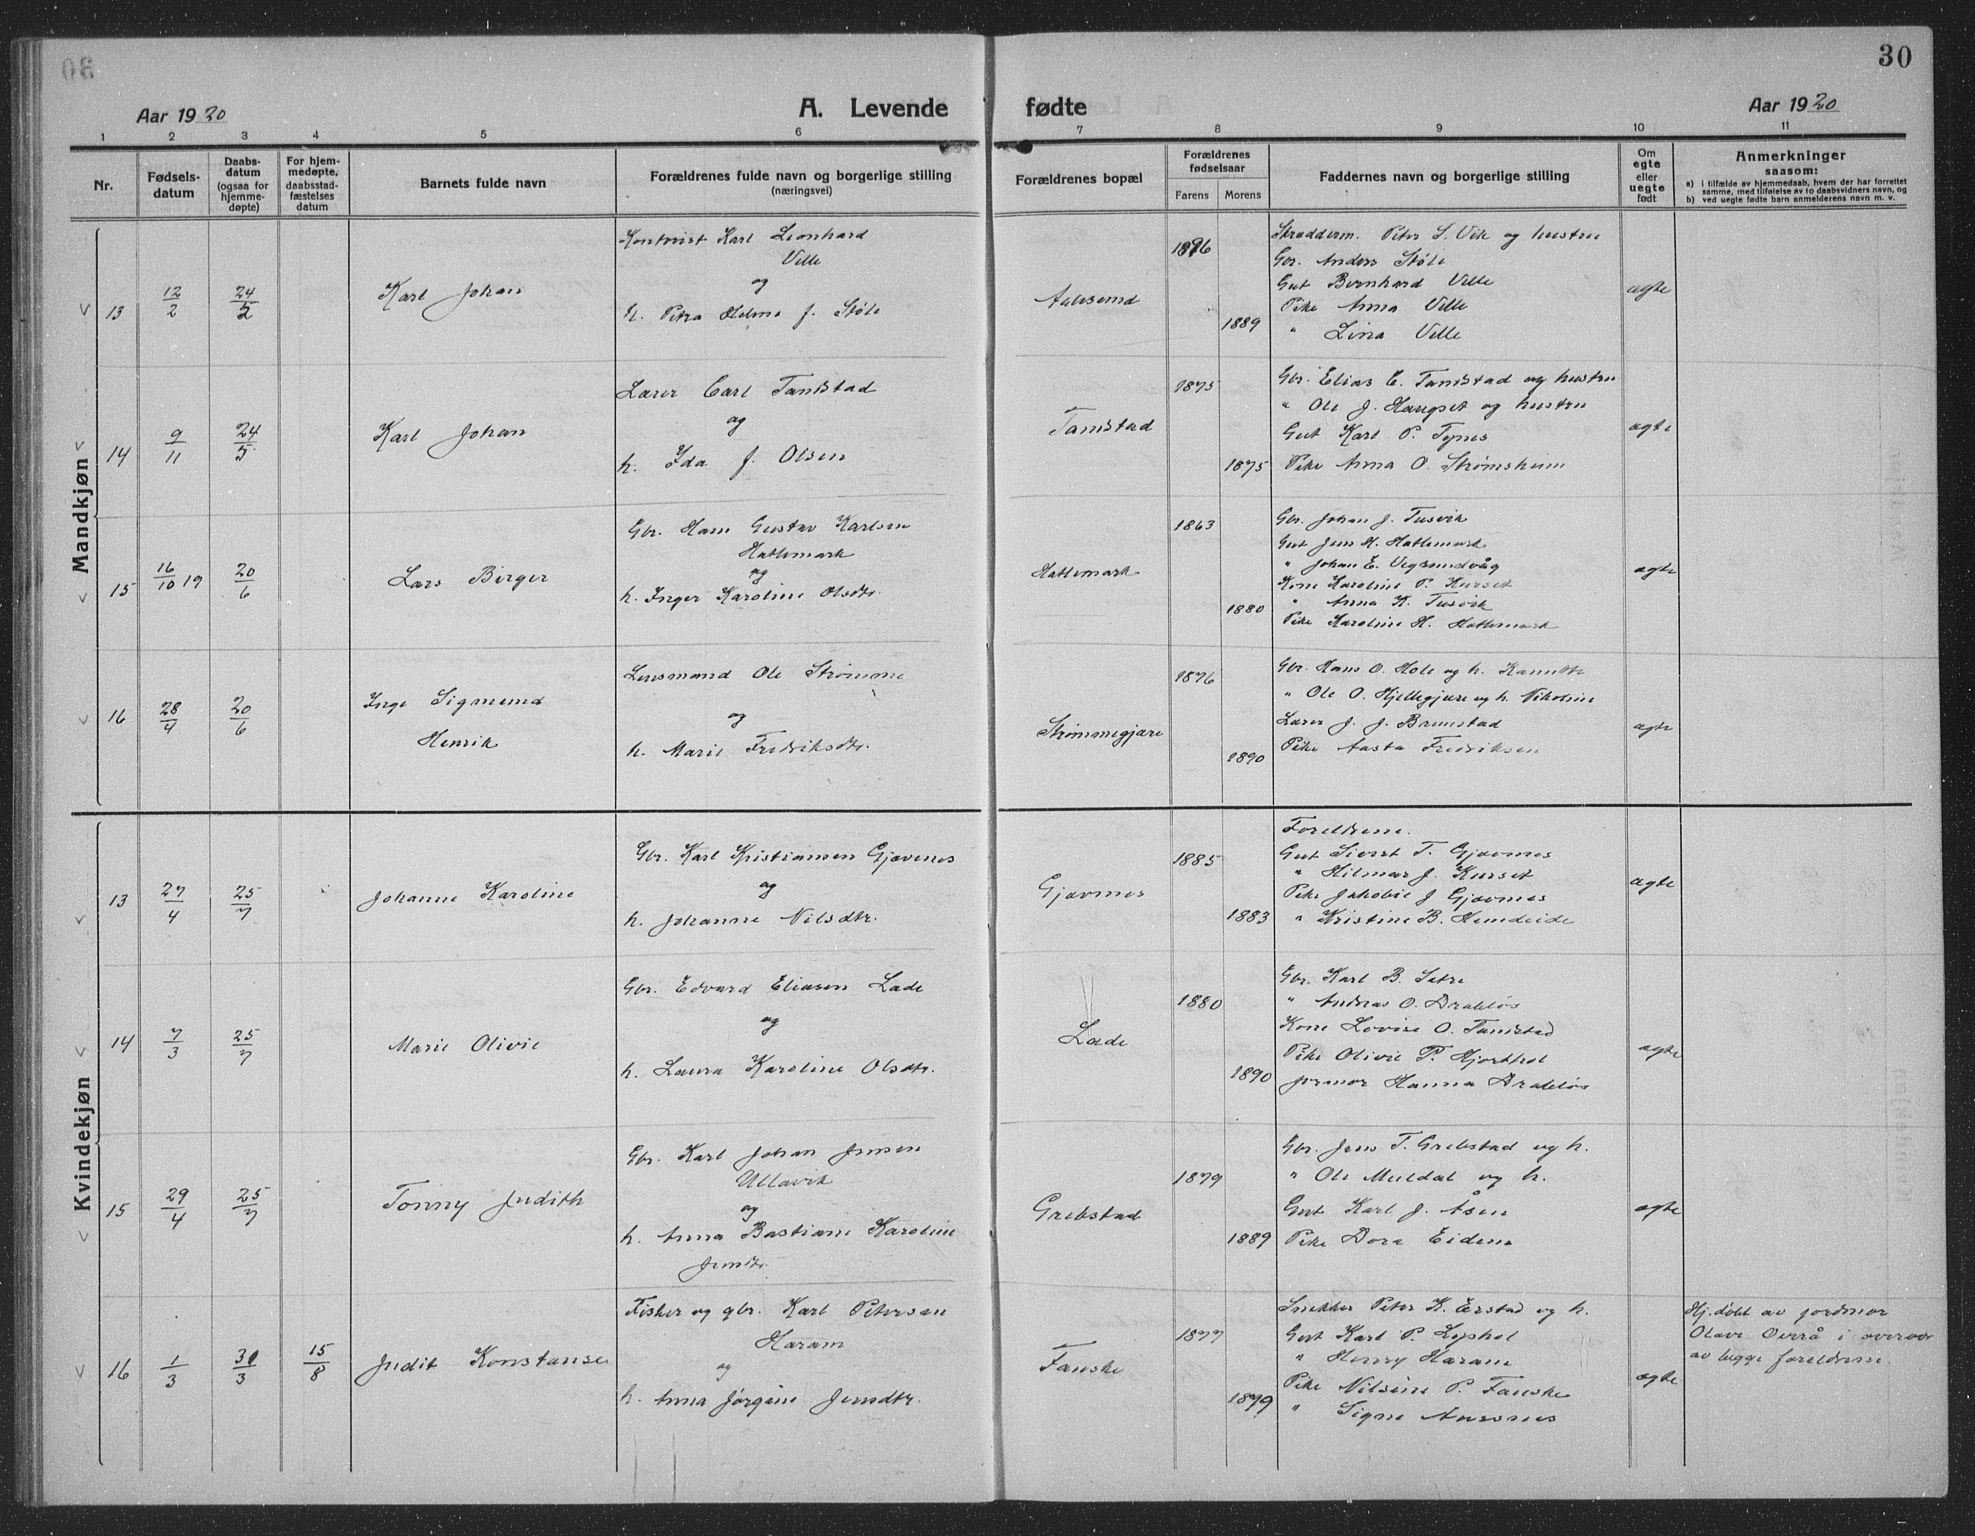 30
Aar 1920
A. Levende fødte
Aar 1920
1 2 3 4 5 6 7 8 9 10 11
Nr.
Fødsels-
datum
Daabs-
datum
(ogsaa for
hjemme-
døpte)
For hjem-
medøpte,
daabsstad-
fæstelses
datum
Barnets fulde navn
Forældrenes fulde navn og borgerlige stilling
(næringsvei)
Forældrenes bopæl
Forældrenes
fødselsaar
Farens
Morens
Faddernes navn og borgerlige stilling
Om
egte
eller
uegte
født
Anmerkninger
saasom:
a) i tilfælde av hjemmedaab, hvem der har forrettet
samme, med tilføielse av to daabsvidners navn, og
b) ved uegte fødte barn anmelderens navn m. v.
Mandkjøn
13
12/2
24/5
Karl Johan
Karl Leonhard
Velle
og
h. Petra Helmine f. Støle
Aalesund
1896
1889
Skradderm. Peter S. Vik og hustru
Gbr. Anders Støle
Gut Bernhard Velle
Pike Anna Velle
" Lina Velle
ægte
14
9/11
24/5
Karl Johan
Lærer Carl Tandstad
og
h. Ida f. Olsen
Tandstad
1875
1875
Gbr. Elias E. Tandstad og hustru
" Ole J. Haugset og hustru
Gut Karl P. Tynes
Pike Anna O. Strømsheim
ægte
15
16/10 19
20/6
Lars Birger
Gbr. Hans Gustav Karlsen
Hattemark
og
h. Inger Karoline Olsdtr.
Hattemark
1863
1880
Gbr. Johan J. Tusvik
Gut Jens H. Hattemark
" Johan E. Vegsundvåg
Kone Karoline P. Kurset
" Anna K. Tusvik
Pike Karoline H. Hattemark
ægte
16
28/4
20/6
Inge Sigmund
Henrik
Lensmand Ole Strømme
og
h. Marie Fredriksdtr.
Strømmegjære
1876
1890
Gbr. Hans O. Hole og h. Kanutte
" Ole O. Hjellegjære og h. Nikoline
Lærer J. J. Brunstad
Pike Aasta Fredriksen
ægte
Kvindekjøn
13
27/4
25/7
Johanne Karoline
Gbr. Karl Kristiansen Gjævenes
og
h. Johanne Nilsdtr.
Gjævnes
1885
1883
Foreldrene.
Gut Sivert T. Gjævnes
" Hilmar J. Kurset
Pike Jakobie J Gjævnes
" Kristine B. Hundeide
ægte
14
7/3
25/7
Marie Olivie
Gbr. Edvard Eliasen Lade
og
h. Laura Karoline Olsdtr.
Lade
1880
1890
Gbr. Karl B. Sætre
" Andreas O. Drabløs
Kone Lovise O. Tandstad
Pike Olivie P. Hjorthol
jormor Hanna Drabløs
ægte
15
29/4
25/7
Tonny Judith
Gbr. Karl Johan Jensen
Ullavik
og
h. Anna Bastiane Karoline
Jensdtr.
Grebstad
1879
1889
Gbr. Jens T. Grebstad og h.
" Ole Muldal og h.
Gut Karl J. Åsen
Pike Dora Eidem
ægte
16
1/3
31/3
15/8
Judit Konstanse
Fisker og gbr. Karl Petersen
Haram
og
h. Anna Jørgine Jensdtr.
Fauske
1877
1879
Snekker Peter K. Erstad og h.
Gut Karl P. Lyshol
" Henry Haram
Pike Nilsine P. Fauske
" Signe Aursnes
ægte
Hj.døbt av jordmor
Olave Overå i overvær
av begge foreldrene.